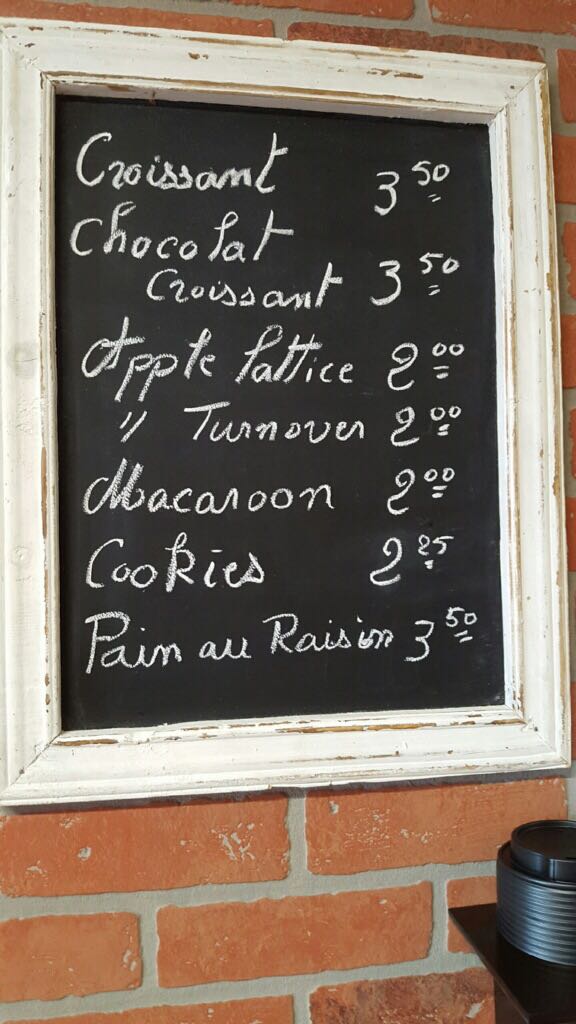 Croissant 3 50
Chocolat
Croissant 3 50
Apple lattice 2 00
" Turnover 2 00
Macaroon 2 00
Cookies 2 25
Pain au Raision 3 50